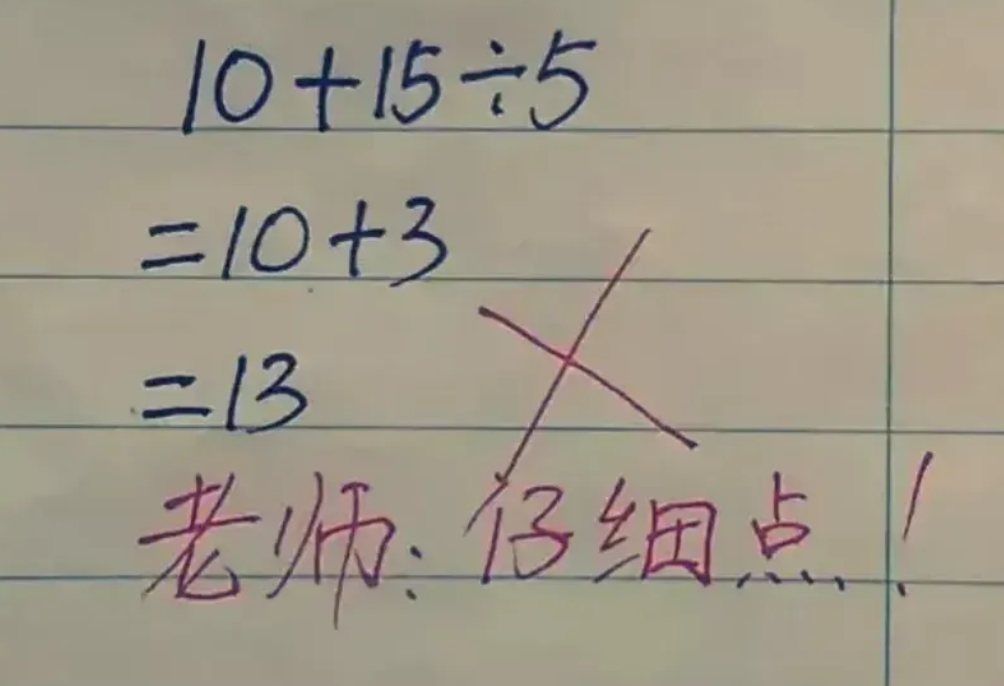 10+15÷5
=10+3
=13
老师：仔细点！